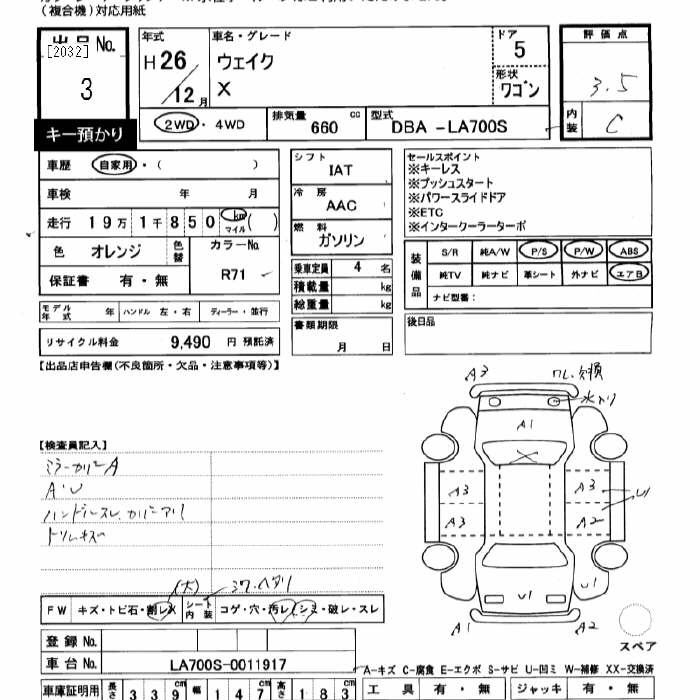 (複合機)対応用紙
出品 No.
[2032]
3
キー預かり
年式
H26
12 月
車名・グレード
ウェイク
X
ドア
5
形状
ワゴン
2WD・4WD
排気量
660 cc
型式
DBA -LA700S
評価点
3.5
内装
C
車歴 自家用・( )
車検 年 月
走行 19万1千850 km マイル ( )
色 オレンジ 色替
カラーNo.
R71
保証書 有・無
モデル年式 年 ハンドル 左・右 ディーラー・並行
リサイクル料金 9,490 円 預託済
シフト
IAT
冷房
AAC
燃料
ガソリン
乗車定員 4 名
積載量 kg
総重量 kg
書類期限
月 日
セールスポイント
※キーレス
※プッシュスタート
※パワースライドドア
※ETC
※インタークーラーターボ
装備品
S/R 純A/W P/S P/W ABS
純TV 純ナビ 革シート 外ナビ エアB
ナビ型番:
後日品
【出品店申告欄(不良箇所・欠品・注意事項等)】
【検査員記入】
ミラーカバーA
A・U
ハンドルスレ、カバーアリ
トリムキズ
A3
ワレ交換
水入り
A1
A3
A3
A3
A2
U1
U1
U1
A1
A2
スペア
(大)
シワ・ヘタリ
FW キズ・トビ石・割レX シート内装 コゲ・穴・汚レ・シミ・破レ・スレ
登録 No.
車台 No. LA700S-0011917
A-キズ C-腐食 E-エクボ S-サビ U-凹ミ W-補修 XX-交換済
車庫証明用 長さ 339 幅 147 高さ 183
工具 有・無 ジャッキ 有・無